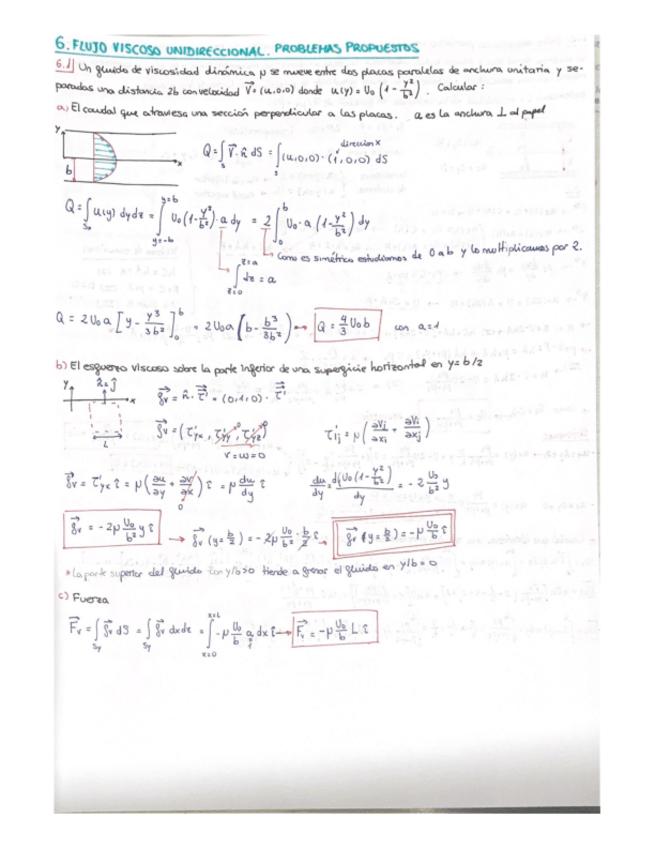 6. FLUJO VISCOSO UNIDIRECCIONAL. PROBLEMAS PROPUESTOS
6.1 Un fluido de viscosidad dinámica μ se mueve entre dos placas paralelas de anchura unitaria y se-
paradas una distancia 2b con velocidad V = (u,0,0) donde u(y) = U₀ (1 - y²/b²). Calcular:
a) El caudal que atraviesa una sección perpendicular a las placas. a es la anchura ⊥ al papel
y
x
b
dirección x
Q = ∫s V·n̂ dS = ∫s (u,0,0)·(1,0,0) dS
Q = ∫ u(y) dydz = ∫ y=-b y=b U₀(1-y²/b²)·a dy = 2∫₀ᵇ U₀·a (1-y²/b²) dy
Como es simétrico estudiamos de 0 a b y lo multiplicamos por 2.
∫ z=0 z=a dz = a
Q = 2U₀a [y - y³/3b²]₀ᵇ = 2U₀a (b - b³/3b²) → Q = 4/3 U₀b con a=1
b) El esfuerzo viscoso sobre la parte inferior de una superficie horizontal en y = b/2
y n̂ = ĵ x
L
fv = n̂·τ' = (0,1,0)·τ'
fv = (τ'yx, τ'yy, τ'yz) τ'ij = μ(∂vj/∂xi + ∂vi/∂xj)
v=w=0
fv = τ'yx î = μ(∂u/∂y + ∂v/∂x) î = μ du/dy î du/dy = d(U₀(1-y²/b²))/dy = -2 U₀/b² y
0
fv = -2μ U₀/b² y î → fv (y=b/2) = -2μ U₀/b² · b/2 î → fv (y=b/2) = -μ U₀/b î
* La parte superior del fluido con y/b>0 tiende a frenar el fluido en y/b = 0
c) Fuerza
Fv = ∫Sy fv dS = ∫Sy fv dxdz = ∫ x=0 x=L -μ U₀/b a dx î → Fv = -μ U₀/b L î
1